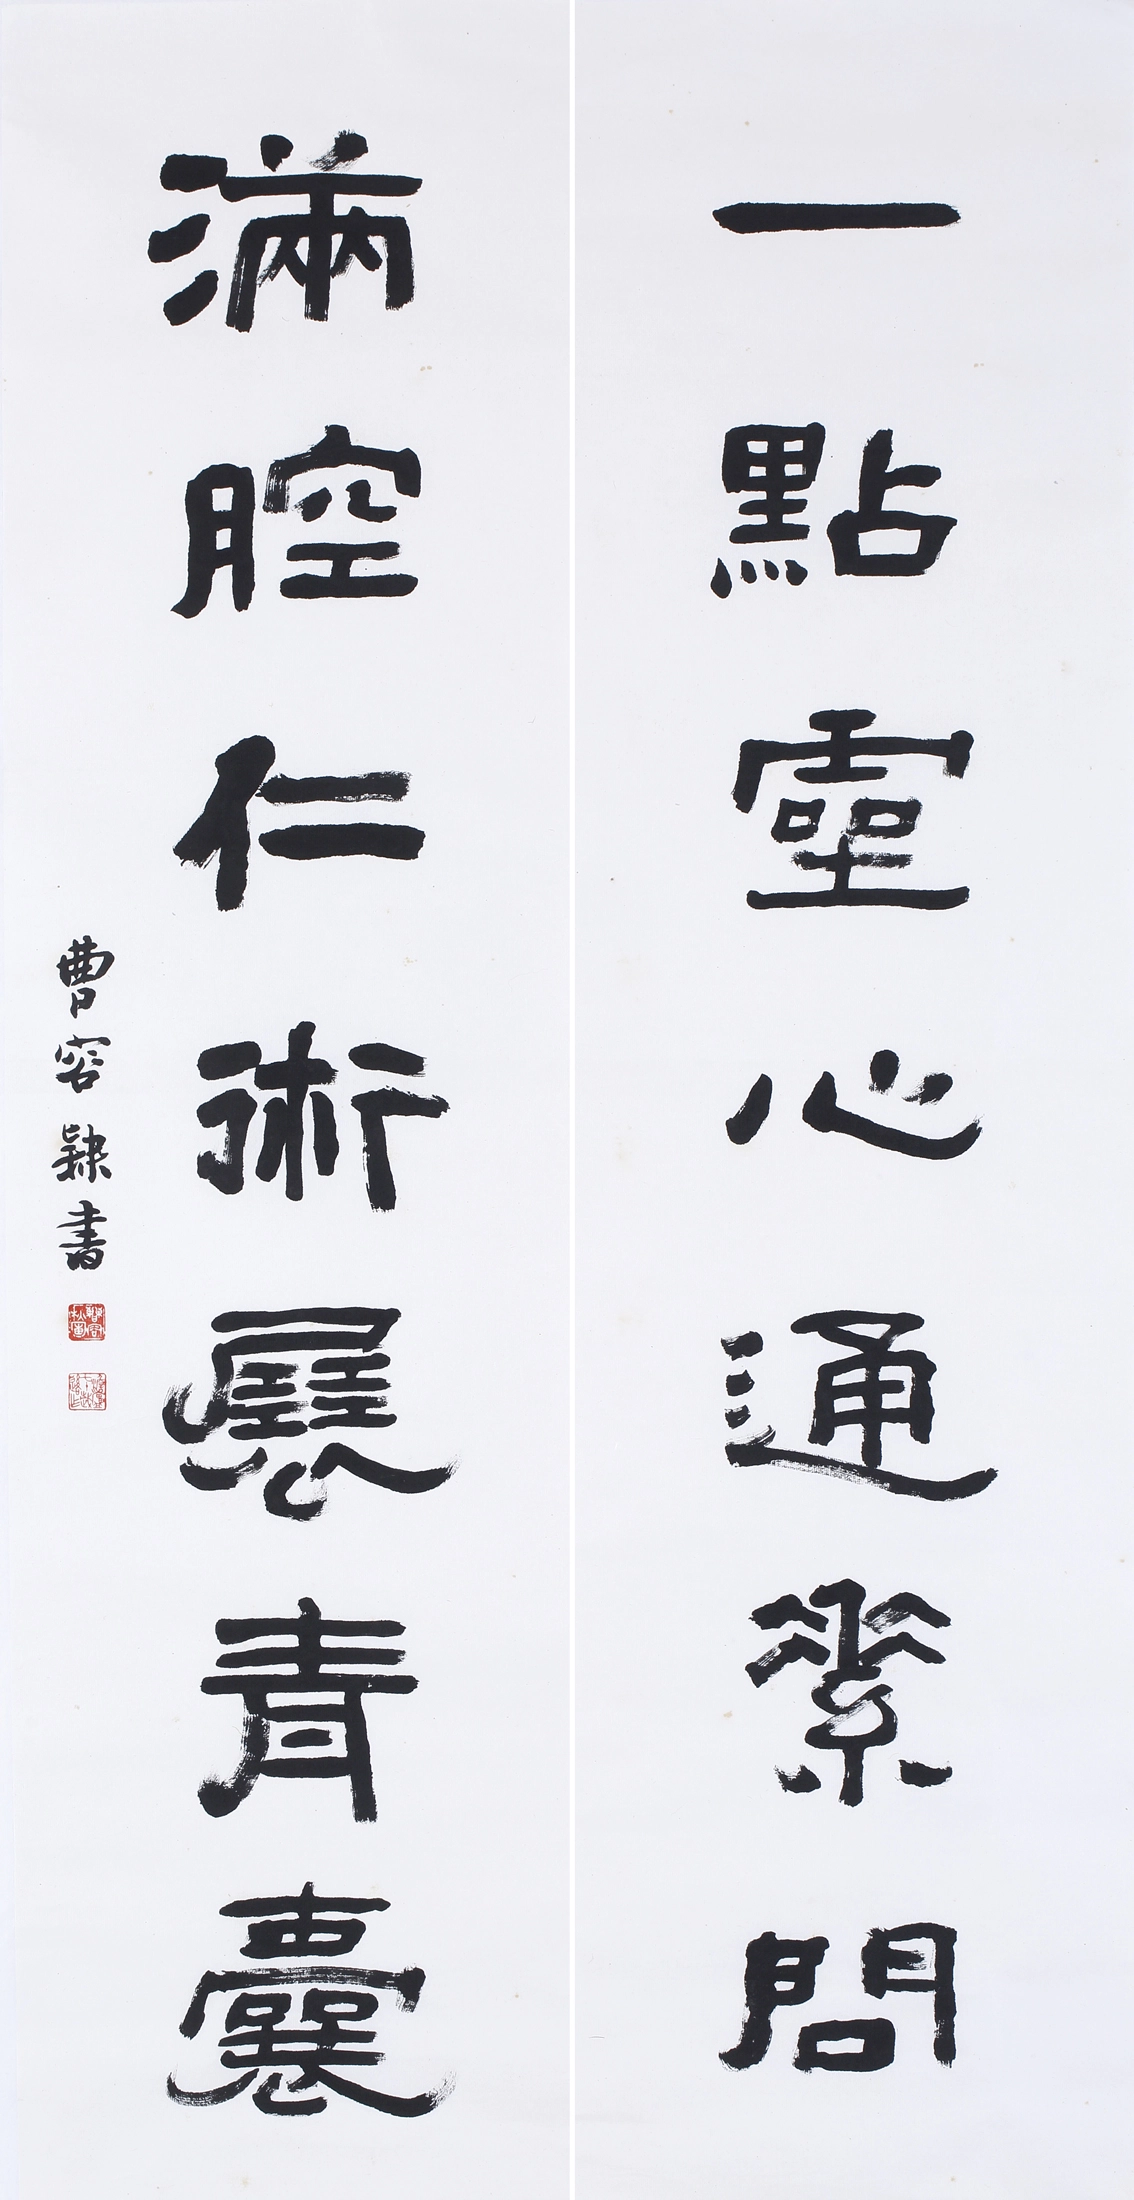 一點靈心通素問
滿腔仁術展青囊
曹容隸書